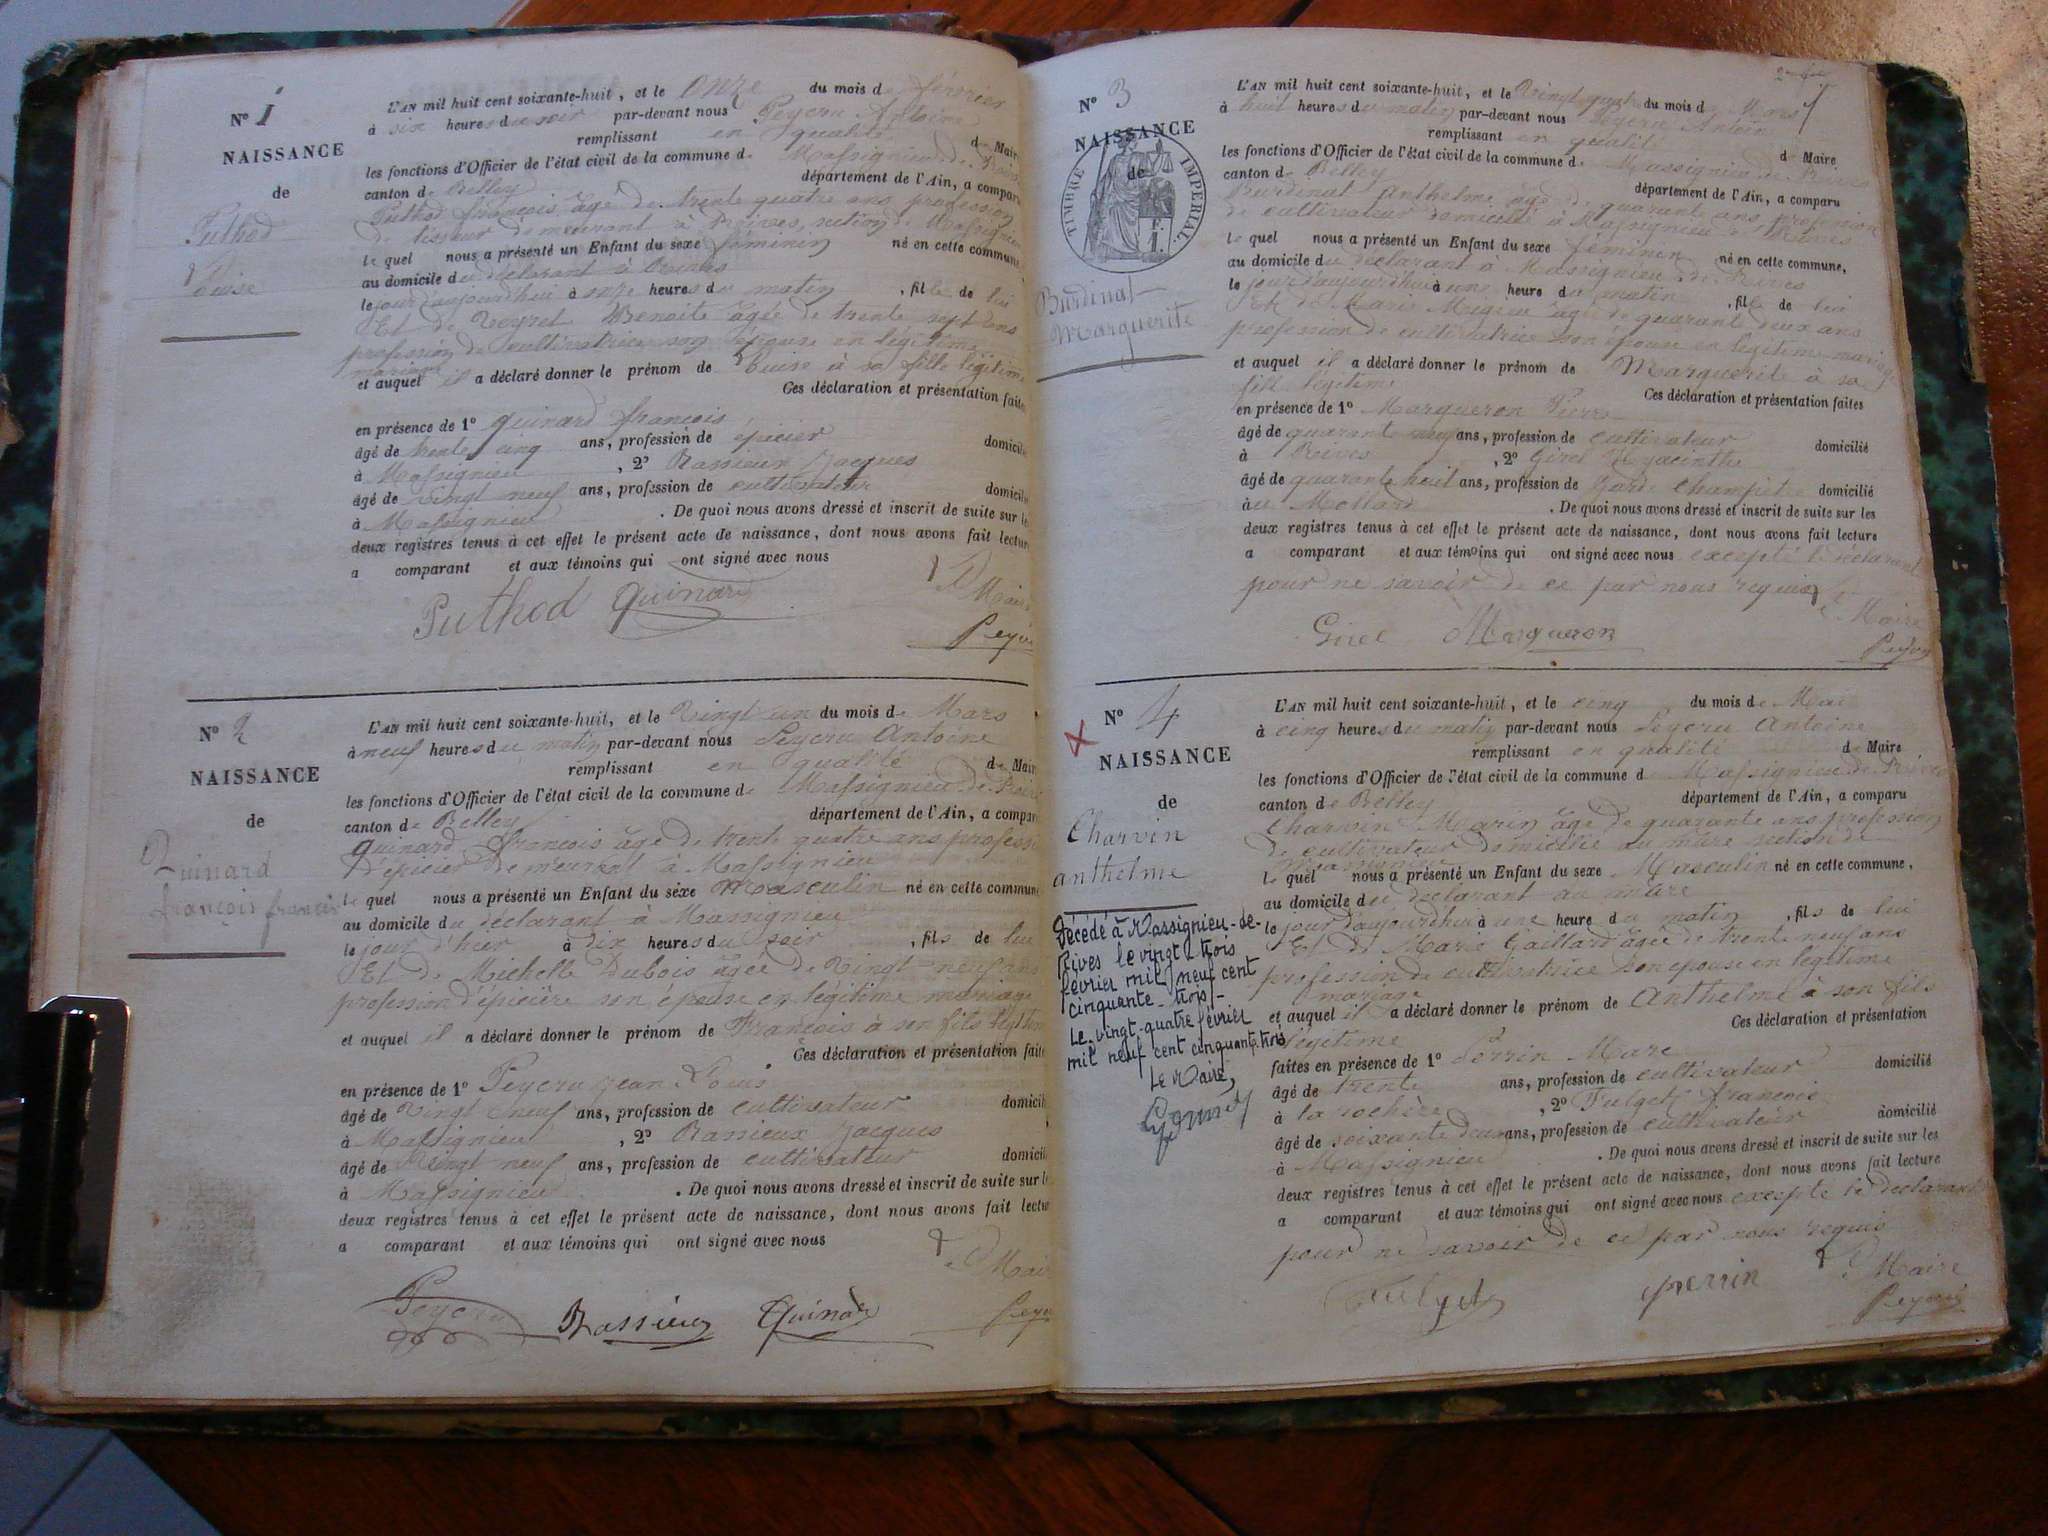 N° 1
NAISSANCE
de
Puthod
Louise
L'AN mil huit cent soixante-huit, et le onze du mois de février
à six heures du soir par-devant nous Peycru Antoine
remplissant en qualité de Maire
les fonctions d'Officier de l'état civil de la commune de Massignieu de Rives
canton de Belley département de l'Ain, a comparu
Puthod françois âgé de trente quatre ans profession
de tisseur demeurant à Rives, section de Massignieu
le quel nous a présenté un Enfant du sexe féminin né en cette commune,
au domicile du déclarant à
le jour d'aujourdhui à onze heures du matin, fille de lui
Et de Veyret Benoite âgée de trente sept ans
profession de cultivatrice son épouse en légitime
mariage
et auquel il a déclaré donner le prénom de Louise à sa fille légitime
Ces déclaration et présentation faites
en présence de 1° quinard françois
âgé de trente cinq ans, profession de épicier domicilié
à Massignieu, 2° Rassieux Jacques
âgé de vingt neuf ans, profession de cultivateur domicilié
à Massignieu. De quoi nous avons dressé et inscrit de suite sur les
deux registres tenus à cet effet le présent acte de naissance, dont nous avons fait lecture
a comparant et aux témoins qui ont signé avec nous
Puthod Quinard
Le Maire
Peycru
N° 2
NAISSANCE
de
Quinard
françois francis
L'AN mil huit cent soixante-huit, et le Vingt un du mois de Mars
à neuf heures du matin par-devant nous Peycru Antoine
remplissant en qualité de Maire
les fonctions d'Officier de l'état civil de la commune de Massignieu de Rives
canton de Belley département de l'Ain, a comparu
quinard françois âgé de trente quatre ans profession
d'épicier demeurant à Massignieu
le quel nous a présenté un Enfant du sexe Masculin né en cette commune
au domicile du déclarant à Massignieu
le jour d'hier à dix heures du soir, fils de lui
Et de Michelle Dubois âgée de Vingt neuf ans
profession d'épicière son épouse en légitime mariage
et auquel il a déclaré donner le prénom de François à son fils légitime
Ces déclaration et présentation faites
en présence de 1° Peycru Jean Louis
âgé de Vingt neuf ans, profession de cultivateur domicilié
à Massignieu, 2° Rassieux Jacques
âgé de Vingt neuf ans, profession de cultivateur domicilié
à Massignieu. De quoi nous avons dressé et inscrit de suite sur les
deux registres tenus à cet effet le présent acte de naissance, dont nous avons fait lecture
a comparant et aux témoins qui ont signé avec nous
Le Maire
Peycru Rassieux Quinard Peycru
N° 3
NAISSANCE
de
TIMBRE IMPERIAL
1 F.
Burdinat
Marguerite
L'AN mil huit cent soixante-huit, et le Vingt quatre du mois de Mars
à huit heures du matin par-devant nous Peycru Antoine
remplissant en qualité de Maire
les fonctions d'Officier de l'état civil de la commune de Massignieu de Rives
canton de Belley département de l'Ain, a comparu
Burdinat Anthelme âgé de quarante ans profession
de cultivateur domicilié à Massignieu de Rives
le quel nous a présenté un Enfant du sexe féminin né en cette commune,
au domicile du déclarant à Massignieu de Rives
le jour d'aujourd'hui à une heure du matin, fille de lui
Et de Marie Migieu âgée de quarante deux ans
profession de cultivatrice son épouse en légitime mariage
et auquel il a déclaré donner le prénom de Marguerite à sa
fille légitime
Ces déclaration et présentation faites
en présence de 1° Margueron Pierre
âgé de quarante neuf ans, profession de cultivateur domicilié
à Rives, 2° Girel Hyacinthe
âgé de quarante huit ans, profession de garde Champêtre domicilié
au Mollard. De quoi nous avons dressé et inscrit de suite sur les
deux registres tenus à cet effet le présent acte de naissance, dont nous avons fait lecture
a comparant et aux témoins qui ont signé avec nous excepté le déclarant
pour ne savoir de ce par nous requis
Le Maire
Girel Margueron
Peycru
N° 4
NAISSANCE
de
Charvin
anthelme
Décédé à Massignieu-de-
Rives le vingt trois
février mil neuf cent
cinquante trois
Le vingt-quatre février
mil neuf cent cinquante trois
Le Maire,
L'AN mil huit cent soixante-huit, et le cinq du mois de Mai
à cinq heures du matin par-devant nous Peycru Antoine
remplissant en qualité de Maire
les fonctions d'Officier de l'état civil de la commune de Massignieu de Rives
canton de Belley département de l'Ain, a comparu
Charvin Marin âgé de quarante ans profession
de cultivateur domicilié au mûre section de
Massignieu
le quel nous a présenté un Enfant du sexe Masculin né en cette commune,
au domicile du déclarant au mûre
le jour d'aujourdhui à une heure du matin, fils de lui
Et de Marie Gaillard âgée de trente neuf ans
profession de cultivatrice son épouse en légitime
mariage
et auquel il a déclaré donner le prénom de Anthelme à son fils
légitime
Ces déclaration et présentation
faites en présence de 1° Perrin Marc
âgé de trente ans, profession de cultivateur domicilié
à la rochère, 2° Fulget françois
âgé de soixante deux ans, profession de cultivateur domicilié
à Massignieu. De quoi nous avons dressé et inscrit de suite sur les
deux registres tenus à cet effet le présent acte de naissance, dont nous avons fait lecture
a comparant et aux témoins qui ont signé avec nous excepté le déclarant
pour ne savoir de ce par nous requis
Le Maire
Fulget perrin
Peycru